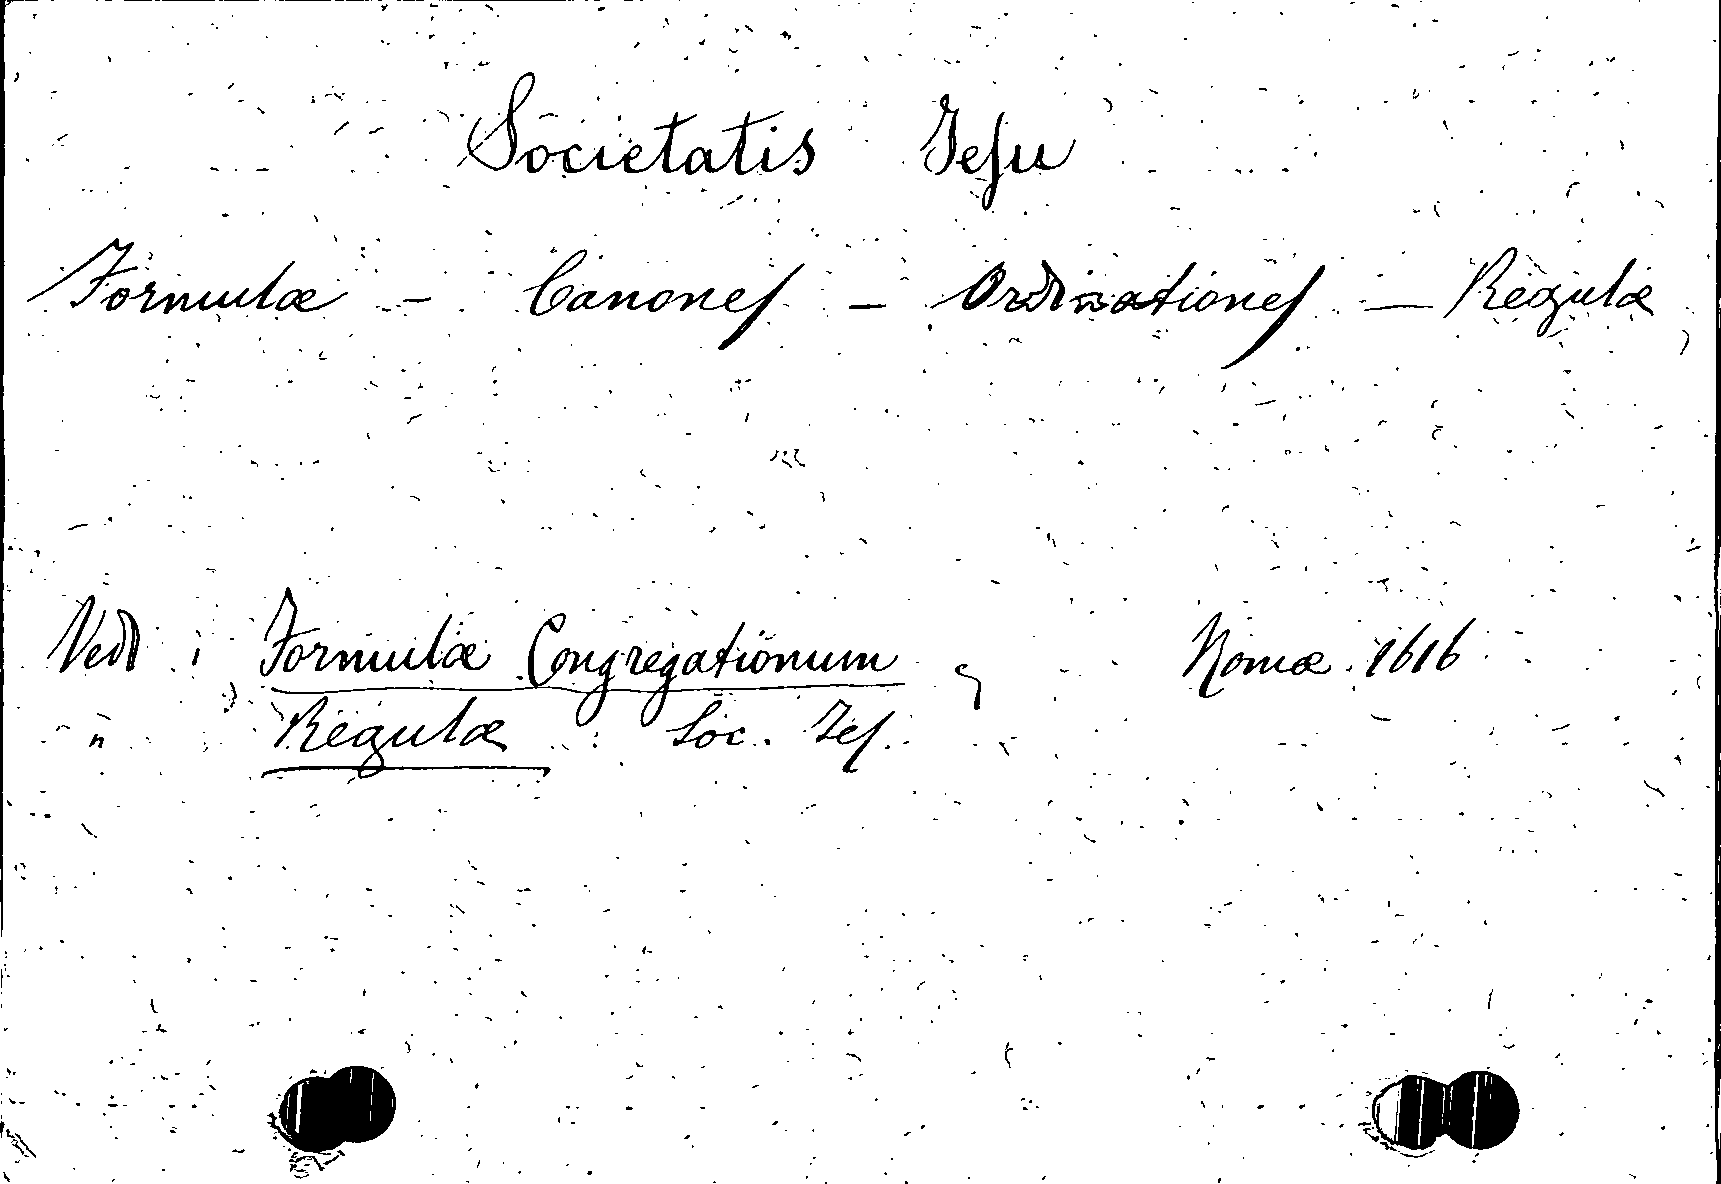 Societatis Jeſu
Formulæ - Canoneſ - Ordinationeſ - Regulæ
Vedi : Formulæ Congregationum , Romæ 1616
" Regulæ Soc. Jeſ.